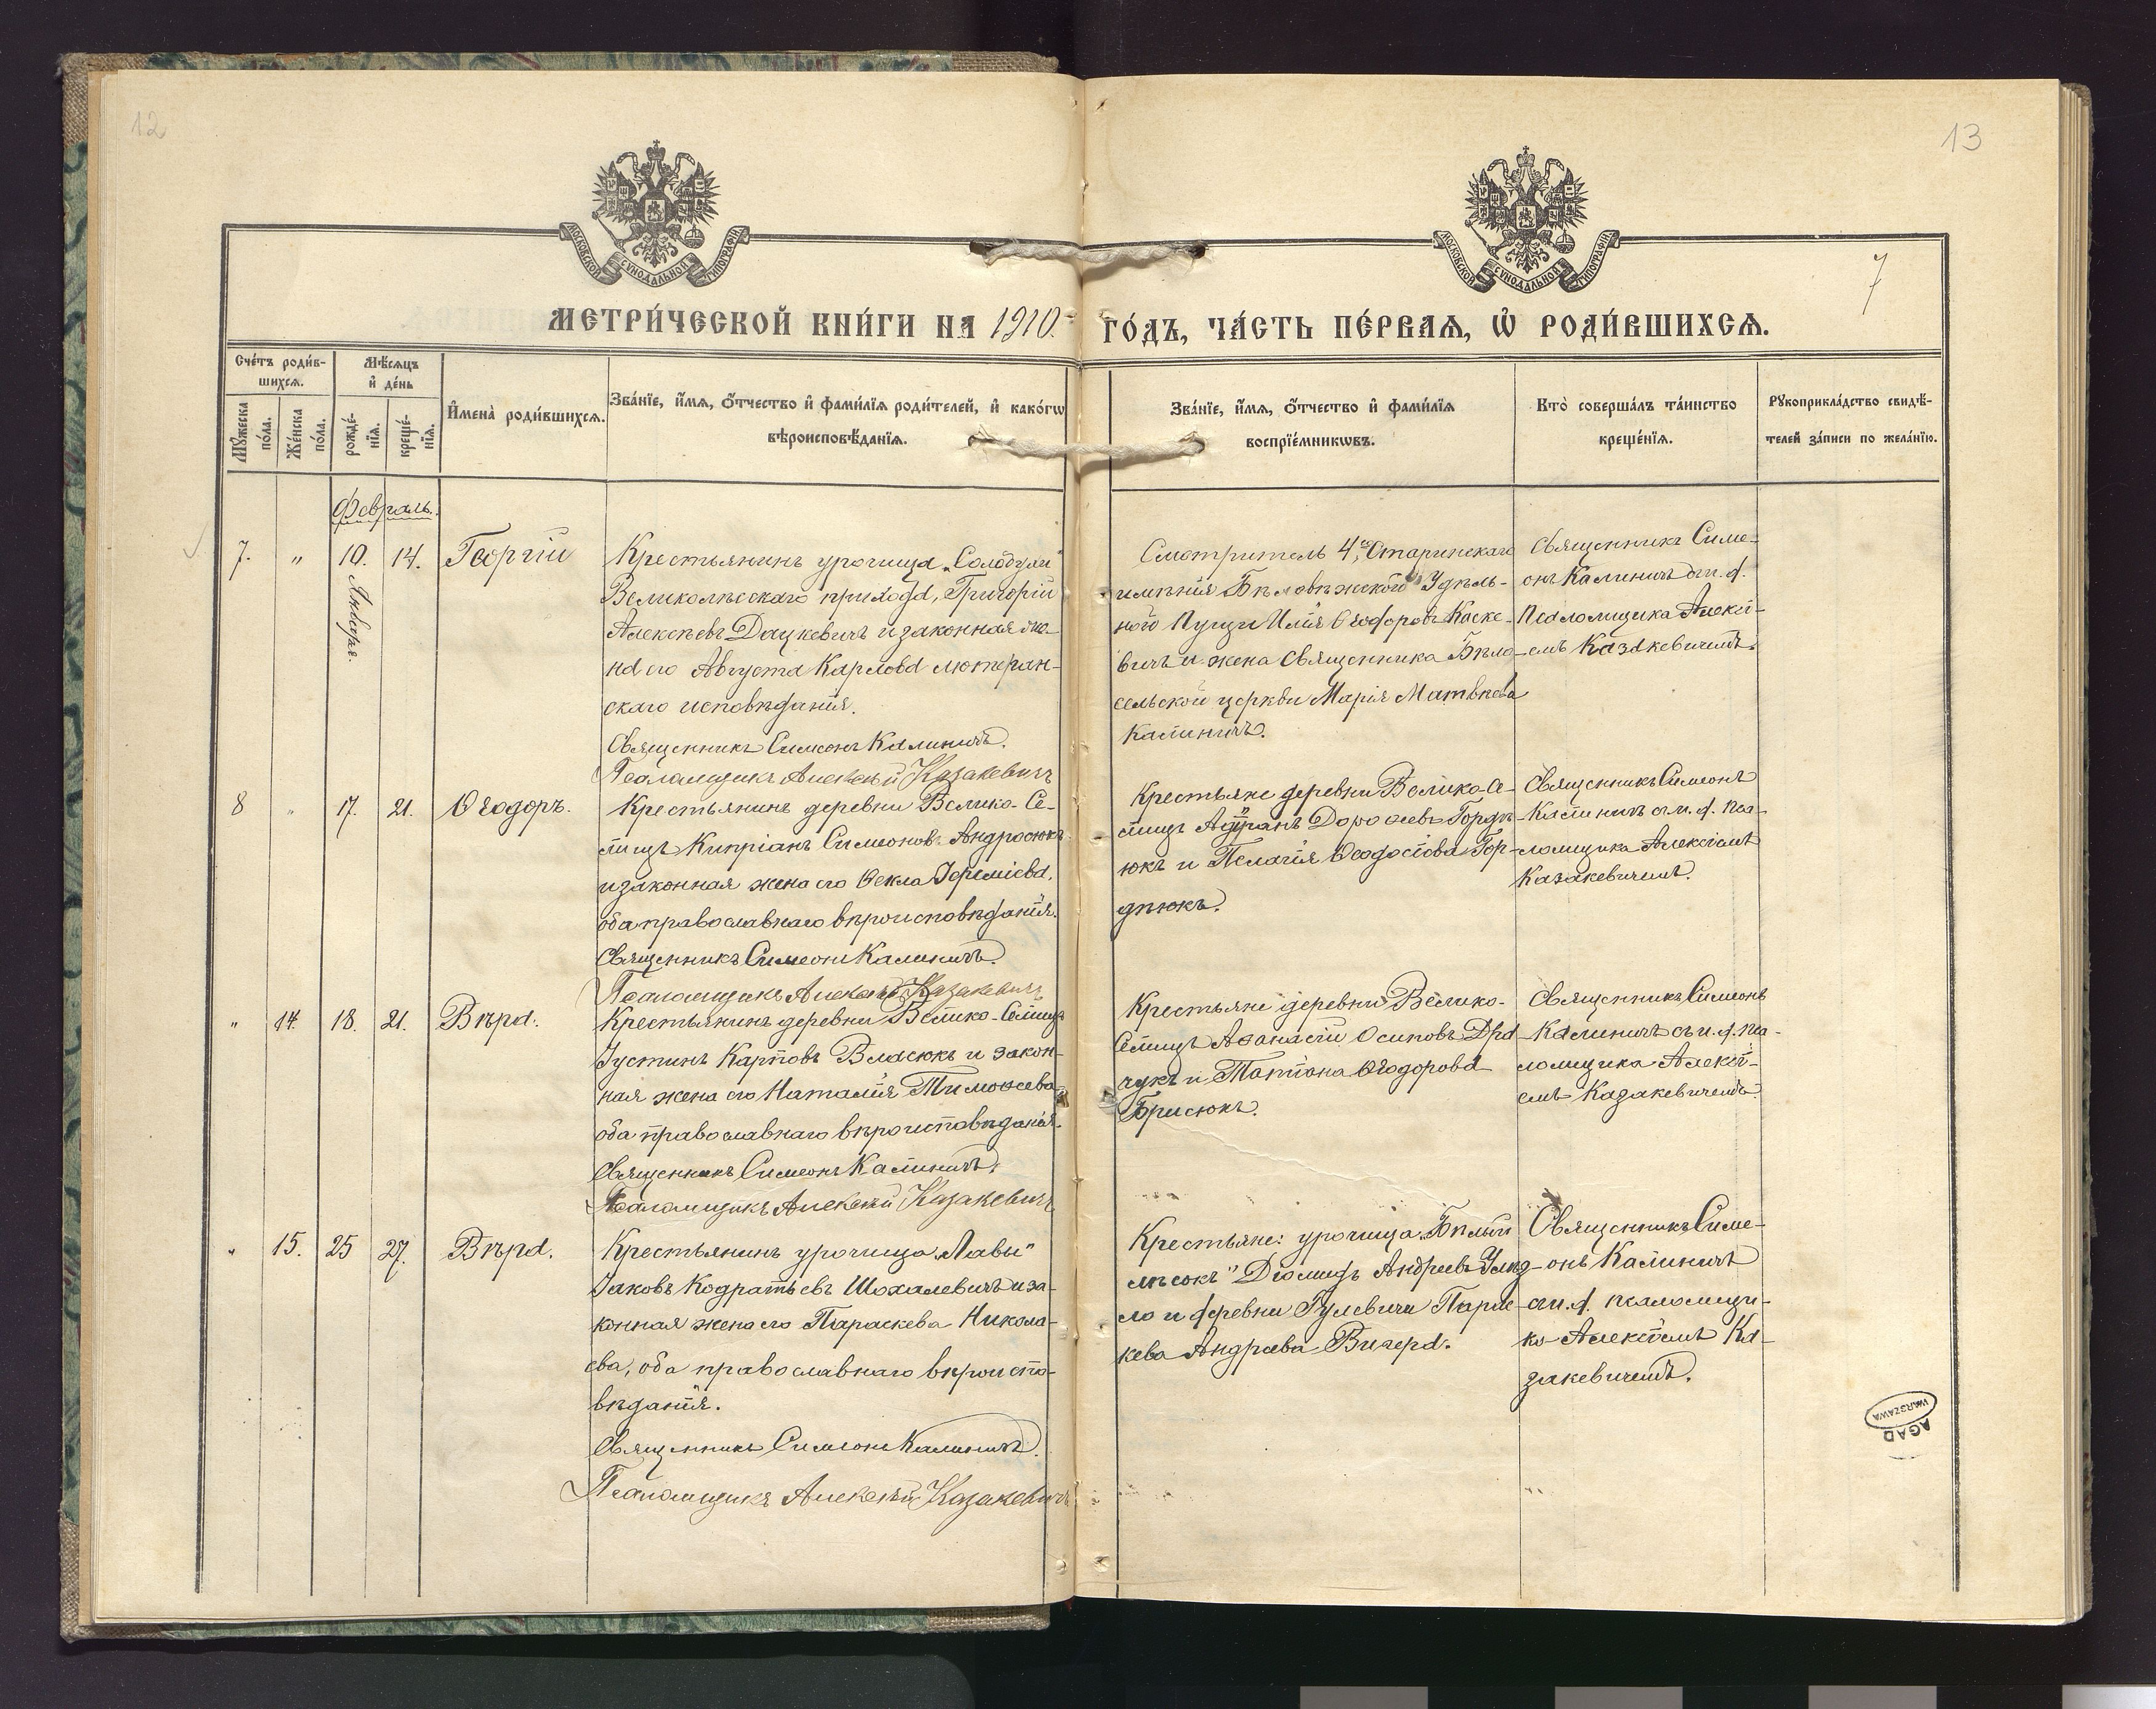 12
13
МОСКОВСКОЙ СѴНОДАЛЬНОЙ ТИПОГРАФІИ
МОСКОВСКОЙ СѴНОДАЛЬНОЙ ТИПОГРАФІИ
7
МЕТРИ́ЧЕСКОЙ КНИ́ГИ НА 1910. ГО́ДЪ, ЧА́СТЬ ПЕ́РВАЯ, Ѡ҆ РОДИ́ВШИХСЯ.
Сче́тъ роди́в-
шихсѧ.
Мꙋ́жеска
по́ла.
Же́нска
по́ла.
Мѣ́сѧцъ
и҆ де́нь
рожде́-
нїѧ.
креще́-
нїѧ.
И҆мена̀ роди́вшихсѧ.
Зва́нїе, и҆́мѧ, ѻ҆́тчество и҆ фами́лїѧ роди́телей, и҆ како́гѡ
вѣроисповѣ́данїѧ.
Зва́нїе, и҆́мѧ, ѻ҆́тчество и҆ фами́лїѧ
воспрїе́мникѡвъ.
Кто̀ соверша́лъ та́инство
креще́нїѧ.
Рꙋкоприкла́дство свидѣ́-
телей за́писи по жела́нїю.
Февраль.
7. " 10. 14. Георгій
Января.
Крестьянинъ урочища „Солодули"
Великолѣсскаго прихода, Григорій
Алексѣевъ Дацкевичъ и законная же-
на его Августа Карлова лютеран-
скаго исповѣданія.
Священникъ Симеонъ Калиничъ.
Псаломщикъ Алексѣй Казакевичъ
Смотритель 4го Старинскаго
имѣнія Бѣловѣжской Удѣль-
ной Пущи Илія Ѳеодоровъ Каске-
вичъ и жена священника Бѣло-
сельской церкви Марія Матвѣева
Калиничъ.
Священникъ Симе-
онъ Калиничъ съ и. д.
псаломщика Алексі-
емъ Казакевичемъ.
8 " 17. 21. Ѳеодоръ.
Крестьянинъ деревни Велико-Се-
лищъ Кипріанъ Симеоновъ Андросюкъ
и законная жена его Ѳекла Іереміева,
оба православнаго вѣроисповѣданія.
Священникъ Симеонъ Калиничъ.
Псаломщикъ Алексѣй Казакевичъ
Крестьяне деревни Велико-Се-
лищъ Адріанъ Дороѳеевъ Гордѣ-
юкъ и Пелагія Ѳеодосіова Гор-
дѣюкъ.
Священникъ Симеонъ
Калиничъ съ и. д. пса-
ломщика Алексіемъ
Казакевичемъ.
" 14. 18. 21. Вѣра.
Крестьянинъ деревни Велико-Селищъ
Іустинъ Карповъ Власюкъ и закон-
ная жена его Наталія Тимоѳеева
оба православнаго вѣроисповѣданія.
Священникъ Симеонъ Калиничъ.
Псаломщикъ Алексѣй Казакевичъ
Крестьяне деревни Велико-
Селищъ Аѳанасій Осиповъ Дра-
чукъ и Татіана Ѳеодорова
Борисюкъ.
Священникъ Симеонъ
Калиничъ съ и. д. пса-
ломщика Алексі-
емъ Казакевичемъ.
" 15. 25 27. Вѣра.
Крестьянинъ урочища „Лавы"
Іаковъ Кодратьевъ Шохалевичъ и за-
конная жена его Параскева Никола-
ева, оба православнаго вѣроиспо-
вѣданія.
Священникъ Симеонъ Калиничъ.
Псаломщикъ Алексѣй Казакевичъ
Крестьяне: урочища „Бѣлый
лѣсокъ" Діомидъ Андреевъ
ло и деревни Гулевичи Парас-
кева Андреева Вичера.
Священникъ Симе-
онъ Калиничъ
съ и. д. псаломщи-
ка Алексіемъ Ка-
закевичемъ.
AGAD
WARSZAWA